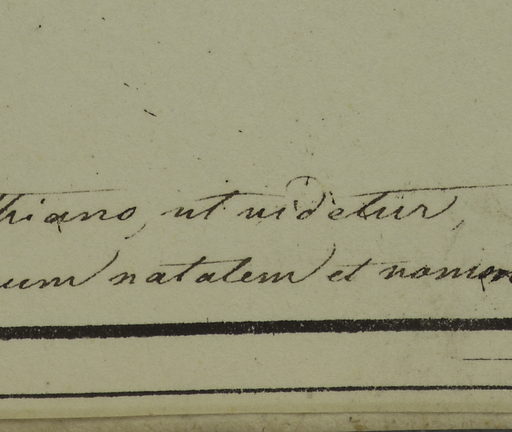 hiano, ut videtur,
um natalem et nomen